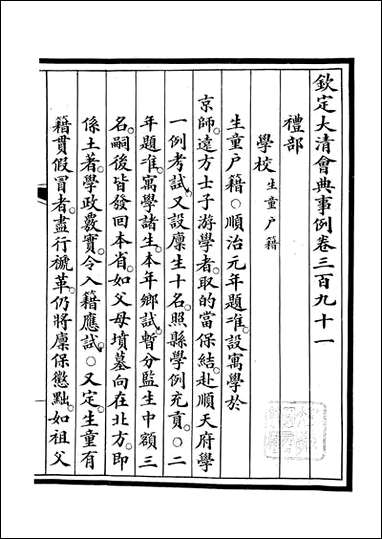 欽定大清會典事例卷三百九十一
禮部
學校生童戶籍
生童戶籍○順治元年題准設寓學於
京師。遠方士子游學者。取的當保結。赴順天府學
一例考試。又設廩生十名。照縣學例充貢。○二
年題准。寓學諸生。本年鄉試。暫分監生中額三
名。嗣後皆發回本省。如父母墳墓向在北方。即
係土著。學政覈實。令入籍應試。○又定。生童有
籍貫假冒者。盡行褫革。仍將廩保懲黜。如祖父